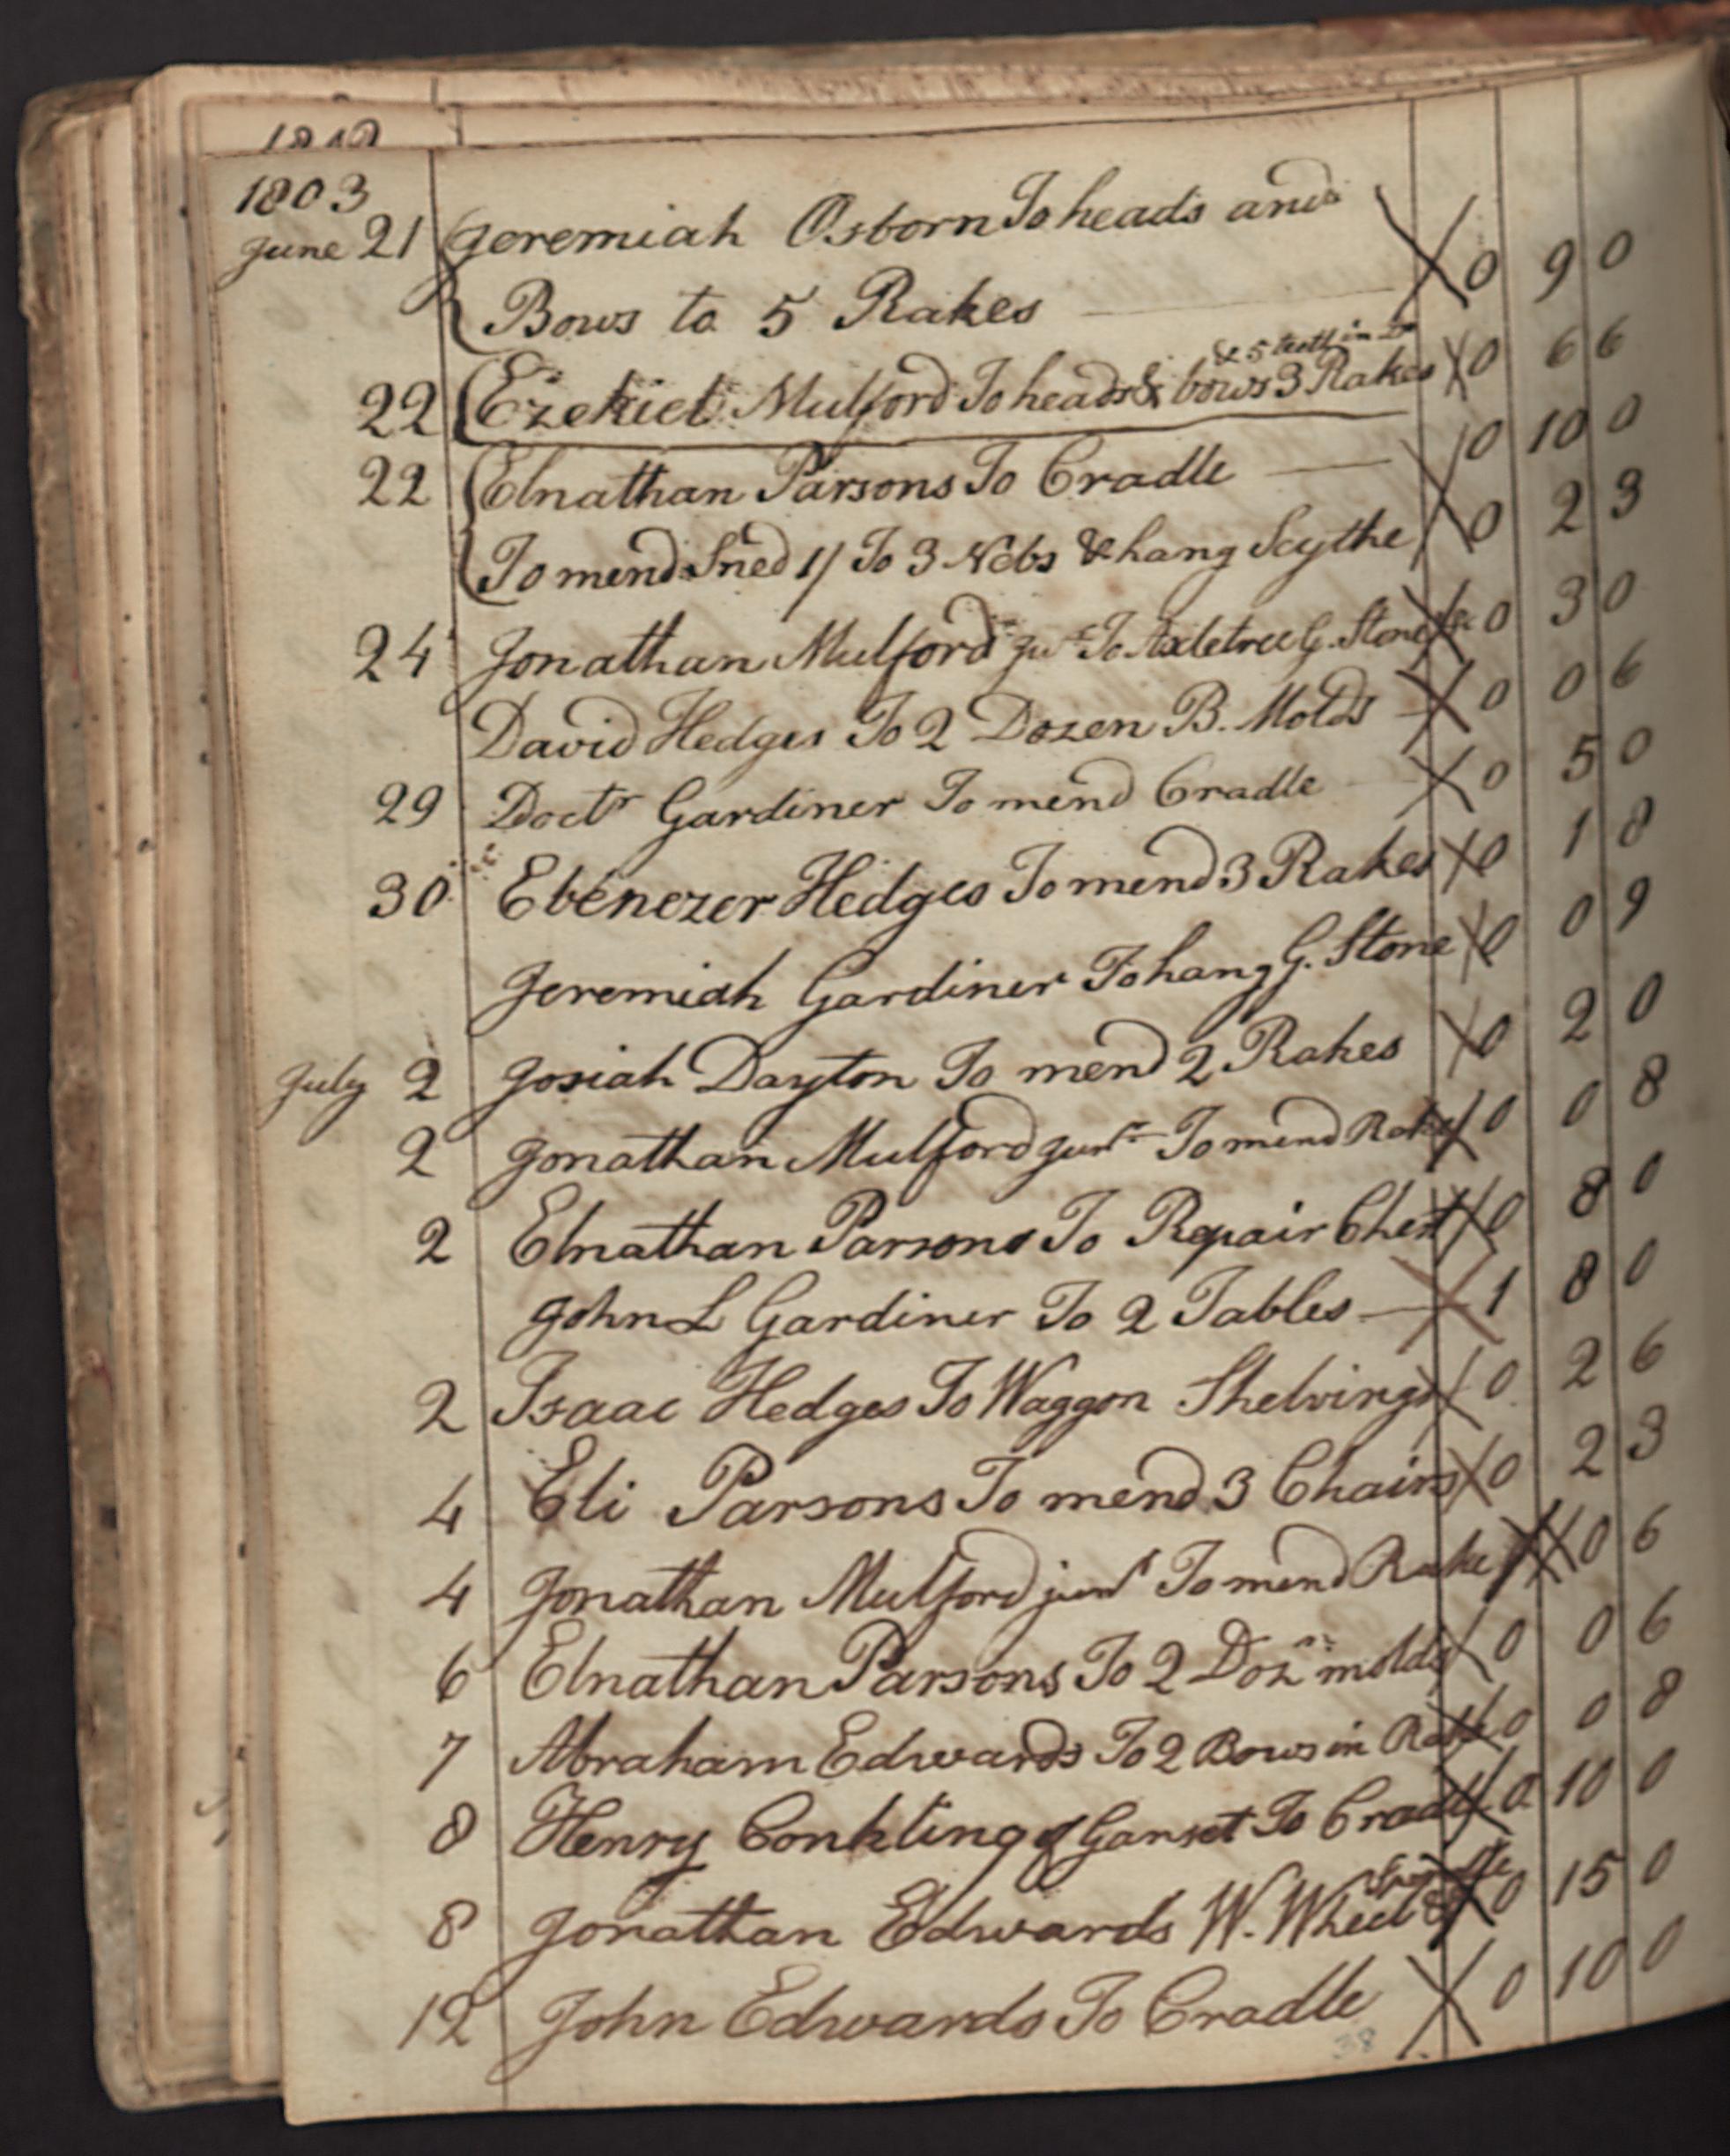 1803
June 21 Jeremiah Osborn To heads and
Bows to 5 Rakes 0 9 0
& 5 teeth in Do
22 Ezekiel Mulford To heads & bows 3 Rakes 0 6 6
22 Elnathan Parsons To Cradle 0 10 0
To mend Sned 1/ To 3 Nebs & hang Scythe 0 2 3
24 Jonathan Mulford Jur To Axletree G. Stone &c 0 3 0
David Hedges To 2 Dozen B. Molds 0 0 6
29 Doctr Gardiner To mend Cradle 0 5 0
30 Ebenezer Hedges To mend 3 Rakes 0 1 8
Jeremiah Gardiner To hang G. Stone 0 0 9
July 2 Josiah Dayton To mend 2 Rakes 0 2 0
2 Jonathan Mulford Junr To mend Rake 0 0 8
2 Elnathan Parsons To Repair Chest 0 8 0
John L Gardiner To 2 Tables 1 8 0
2 Isaac Hedges To Waggon Shelvings 0 2 6
4 Eli Parsons To mend 3 Chairs 0 2 3
4 Jonathan Mulford junr To mend Rake 0 6
6 Elnathan Parsons To 2 Dozn molds 0 0 6
7 Abraham Edwards To 2 Bows in Rake 0 0 8
8 Henry Conkling of Ganset To Cradle 0 10 0
8 Jonathan Edwards W. Wheel & 0 15 0
12 John Edwards To Cradle 0 10 0
38